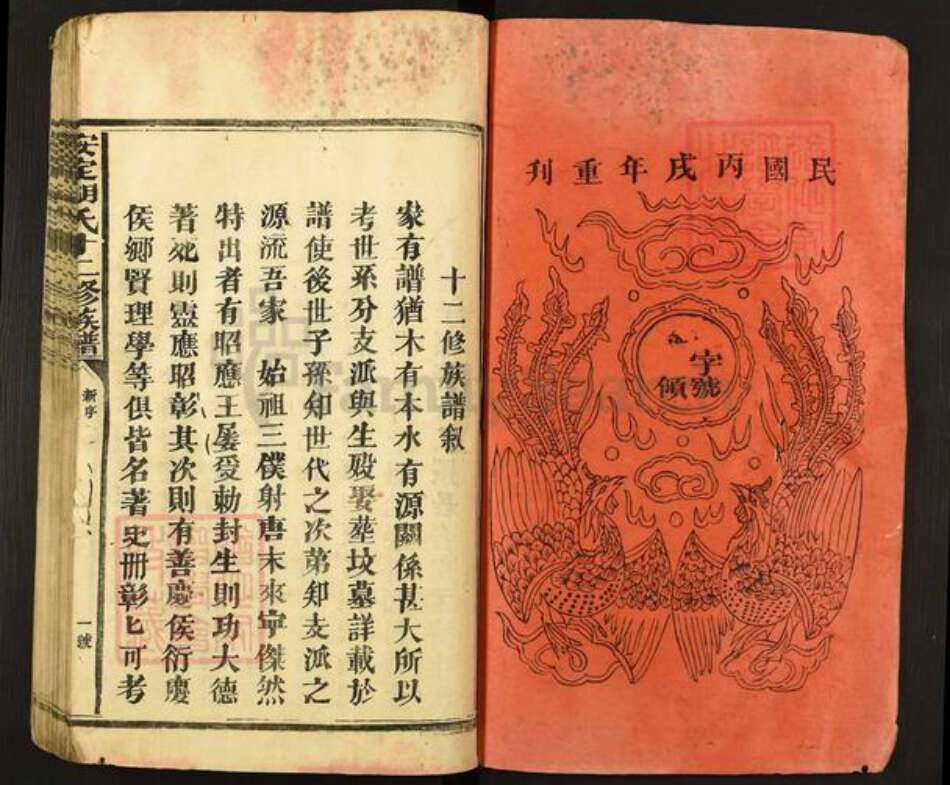 民國丙戌年重刊
字號
傾
十二修族譜叙
家有譜猶木有本水有源關係甚大所以
考世系分支派與生殁娶塟坟墓詳載於
譜使後世子孫知世代之次第知支派之
源流吾家 始祖三僕射唐末來寧傑然
特出者有昭應王屡受勅封生則功大德
著死則靈應昭彰其次則有善慶侯衍慶
侯鄉賢理學等俱皆名著史冊彰匕可考
安定胡氏十二修族譜
新序
一號